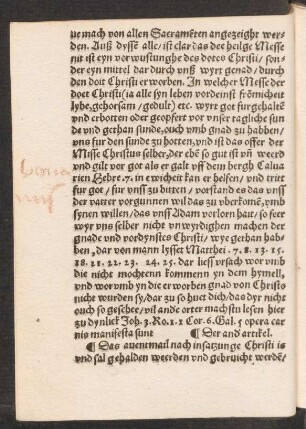 ue mach von allen Sacramẽten angezeight wer-
den. Auß dysse alle/ ist clar das dee heilge Messe
nit ist eyn vorwustunghe des dotes Christi/ son-
der eyn mittel dar durch vnß wyrt genad/ durch
den doit Christi erworben. In welcher Messe der
doet Christi (ia alle syn leben vordenst frõmicheit
lybe, gehorsam/ gedult) etc. wyrt got furgehaltẽ
vnd erbotten oder geopfert vor vnser tagliche sun
de vnd gethan sunde, ouch vmb gnad zu habben/
vns fur den sunde zu hotten, vnd ist das offer der
Messe Christus selber, der ehẽ so gut ist vñ weerd
vnd gilt vor got als er galt vff dem bergh Calua
rien Hebre. 7. in ewicheit kan er helfen/ vnd tritt
fur got/ fur vnß zu bitten/ vorstand es das vnß
der vatter vorgunnen wil das zu vberkomẽ, vmb
synen willen/ das vnß Adam vorlorn hait/ so feer
wyr vns selber nicht vnwyrdighen machen der
gnade vnd vordynstes Christi/ wye gerhan hab
ben, dar von mann lysset Matthei. 7. 8. 13. 15.
18. 21. 22. 23. 24. 25. dar liess vrsach wor vmb
die nicht mochtenn kommenn yn dem hymell,
vnd wor vmb yn die er worben gnad von Christo
nicht wurden sy/ dar zu so huet dich/ das dyr nicht
ouch so geschee/ vil ande orter machstu lesen hier
zu dynlick Joh. 3. Ro. 1. 1 Cor. 6. Gal. 5 opera car
nis manifesta sunt ¶ Der and artikel.
¶ Das auentmail nach insatzunge Christi is
vnd sal gehalden weerden vnd gebruicht werdẽ/